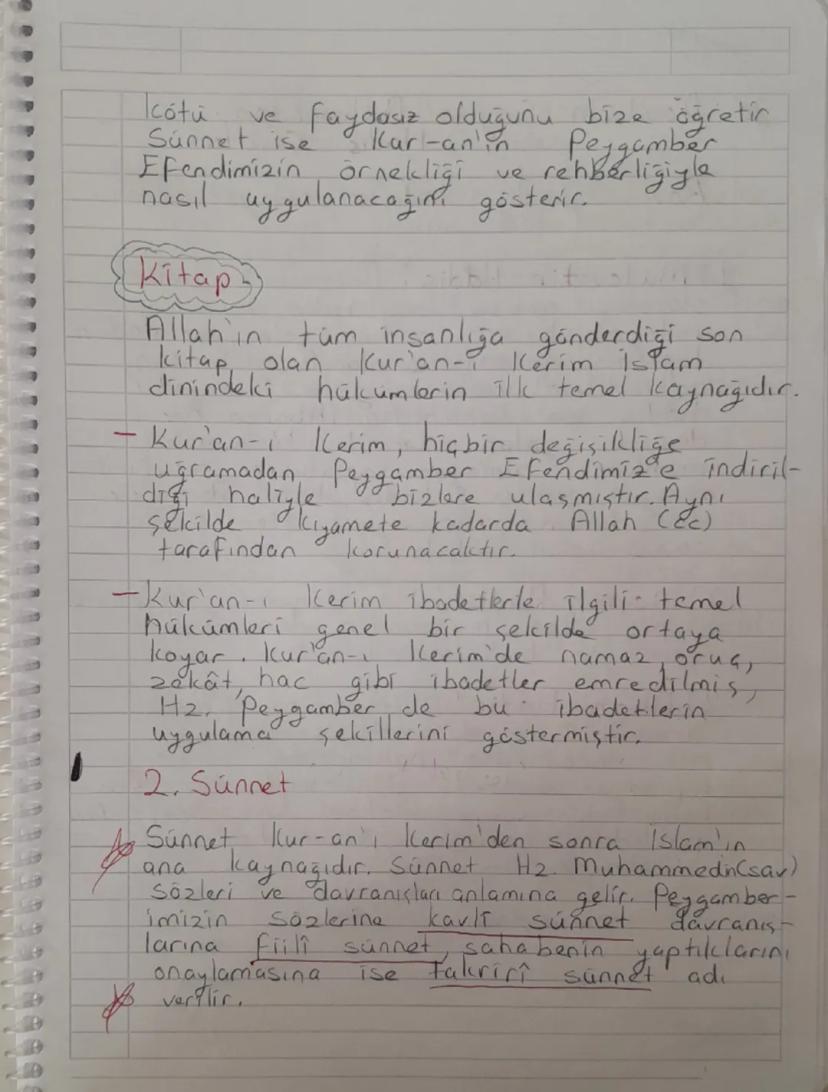 kötü ve faydasız olduğunu bize öğretir
Sünnet ise Kur-an'ın Peygamber
Efendimizin örnekliği ve rehberliğiyle
nasıl uygulanacağını gösterir.
Kitap
Allah'ın tüm insanlığa gönderdiği son
kitap olan Kur'an-ı Kerim İslam
dinindeki hükümlerin ilk temel kaynağıdır.
- Kur'an-ı Kerim, hiçbir değişikliğe
uğramadan Peygamber Efendimiz'e indiril-
diği haliyle bizlere ulaşmıştır. Aynı
şekilde kıyamete kadarda Allah (cc)
tarafından korunacaktır.
- Kur'an-ı Kerim ibadetlerle ilgili temel
hükümleri genel bir şekilde ortaya
koyar. Kur'an-ı Kerim'de namaz, oruç,
zekât, hac gibi ibadetler emredilmiş,
Hz. Peygamber de bu ibadetlerin
uygulama şekillerini göstermiştir.
2. Sünnet
Sünnet, Kur-an'ı Kerim'den sonra İslam'ın
ana kaynağıdır. Sünnet Hz. Muhammedin(sav)
sözleri ve davranışları anlamına gelir. Peygamber-
imizin sözlerine kavlî sünnet davranış-
larına fiilî sünnet, sahabenin yaptıklarını
onaylamasına ise takrirî sünnet adı
verilir.